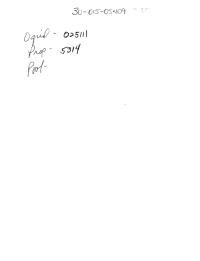 30-015-05409
Ogrid - 025111
Prop - 5014
Pool -